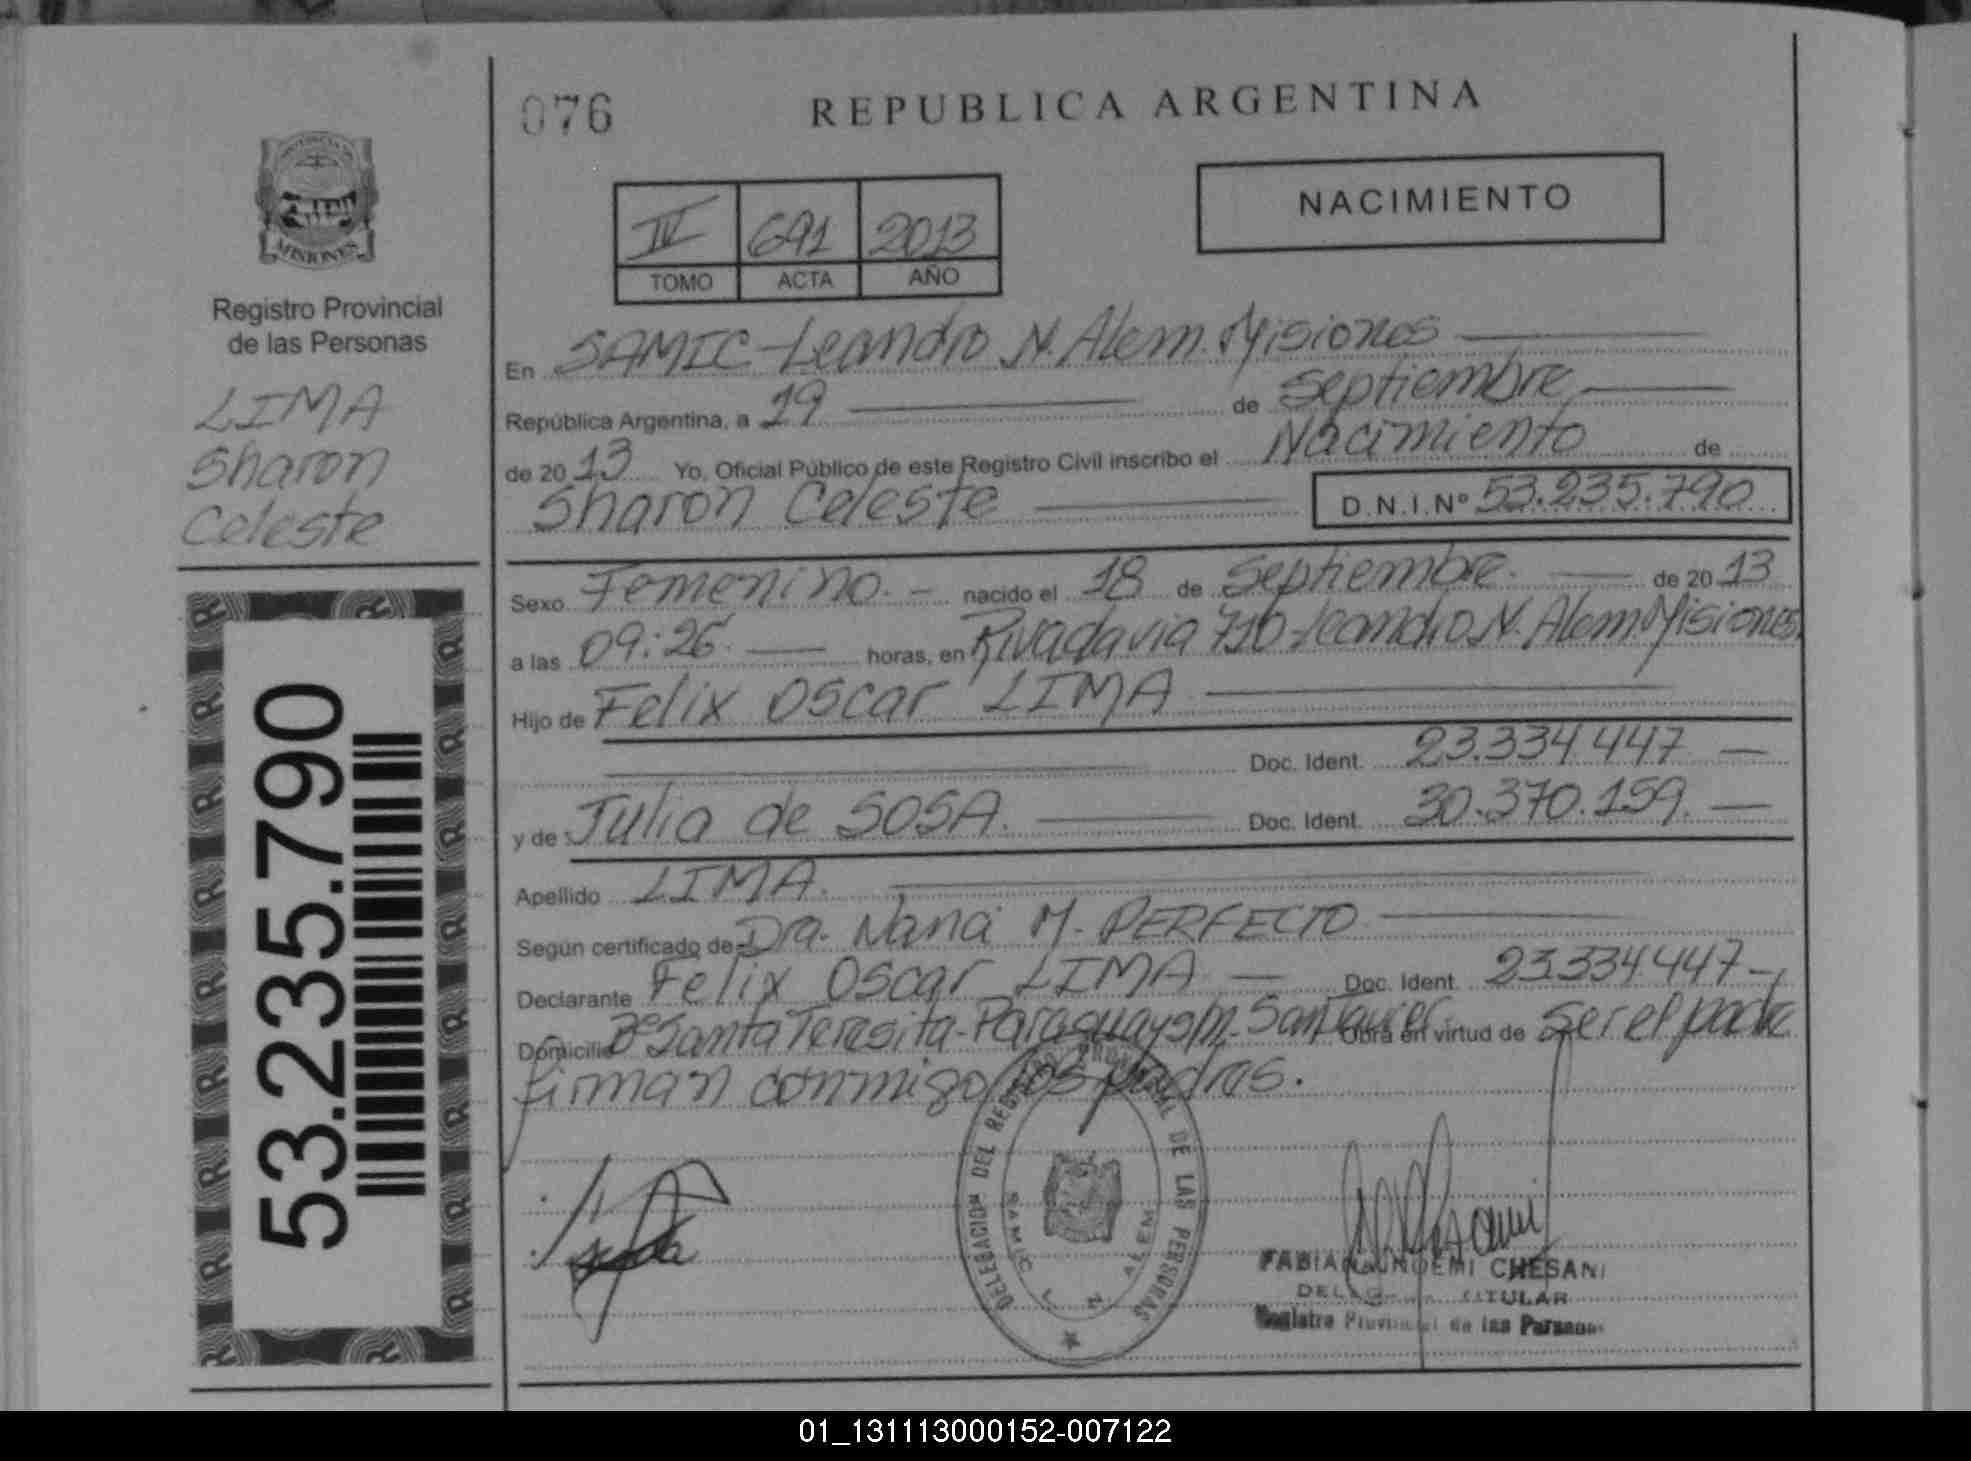 076
REPUBLICA ARGENTINA
NACIMIENTO
IV 691 2013
TOMO ACTA AÑO
MISIONES
Registro Provincial
de las Personas
LIMA
Sharon
Celeste
53.235.790
En SAMIC-Leandro N. Alem. Misiones
República Argentina, a 19 de Septiembre
de 20 13 Yo, Oficial Público de este Registro Civil inscribo el Nacimiento de
Sharon Celeste D.N.I.Nº 53.235.790
Sexo Femenino.- nacido el 18 de Septiembre. de 20 13
a las 09:26. horas, en Rivadavia 710-Leandro N. Alem. Misiones
Hijo de Felix Oscar LIMA
Doc. Ident. 23.334.447
y de Julia de SOSA. Doc. Ident. 30.370.159.
Apellido LIMA.
Según certificado de Dra. M. PERFECTO
Declarante Felix Oscar LIMA Doc. Ident. 23.334.447-
Domicilio Bº Santa Teresita-Paraguay s/n. San Javier Obra en virtud de ser el padre
firman conmigo los padres.
DELEGACION DEL REGISTRO PROVINCIAL DE LAS PERSONAS
SAMIC L. N. ALEM
FABIANA NOEMI CHESANI
TITULAR
Registro Provincial de las Personas
01_131113000152-007122